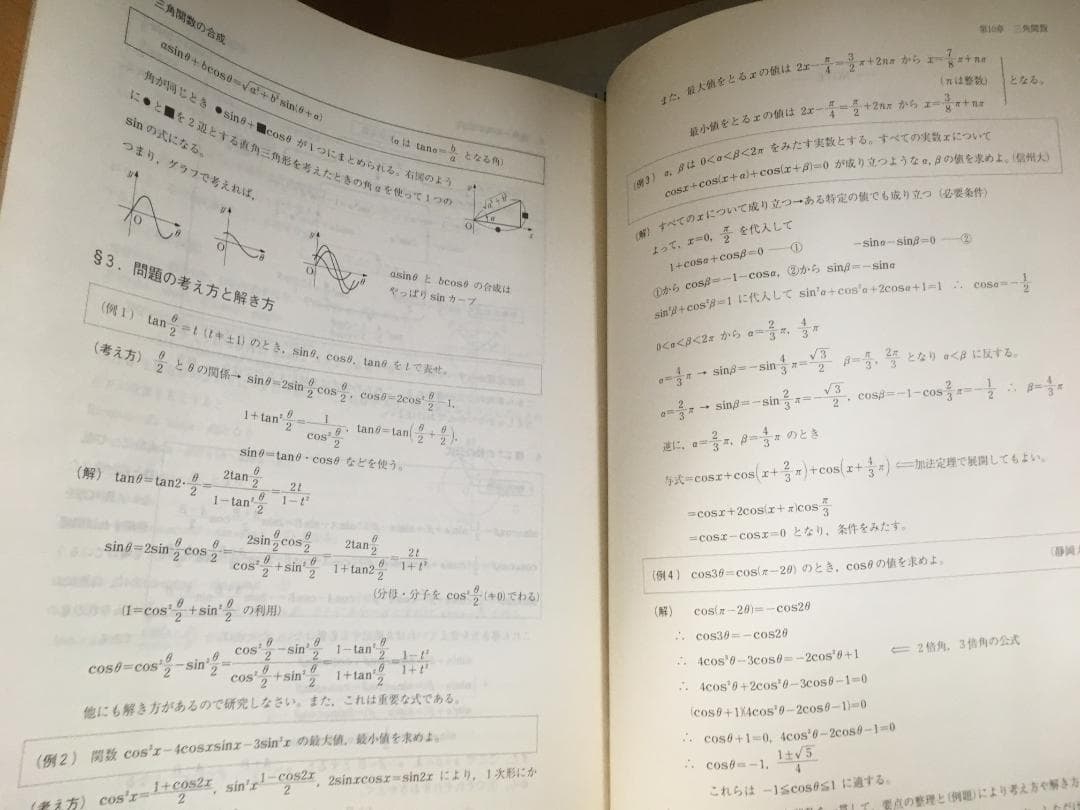 三角関数の合成
asinθ+bcosθ=√a²+b² sin(θ+α)
(αは tanα=b/a となる角)
角が同じとき ●sinθ+■cosθ が1つにまとめられる。右図のよう
に●と■を2辺とする直角三角形を考えたときの角αを使って1つの
sinの式になる。
つまり,グラフで考えれば,
y
O
θ
y
O
θ
y
O
θ
y
√a²+b²
α
O
x
asinθ と bcosθ の合成は
やっぱり sin カーブ
§3. 問題の考え方と解き方
(例1) tan θ/2=t (t≠±1) のとき,sinθ,cosθ,tanθ を t で表せ。
(考え方) θ/2 と θ の関係→ sinθ=2sin θ/2 cos θ/2, cosθ=2cos² θ/2−1,
1+tan² θ/2=1/cos² θ/2, tanθ=tan(θ/2+θ/2),
sinθ=tanθ・cosθ などを使う。
(解) tanθ=tan2・θ/2=2tan θ/2/1−tan² θ/2=2t/1−t²
sinθ=2sin θ/2 cos θ/2=2sin θ/2 cos θ/2/cos² θ/2+sin² θ/2=2tan θ/2/1+tan2 θ/2=2t/1+t²
(分母・分子を cos² θ/2 (≠0)でわる)
(1=cos² θ/2+sin² θ/2 の利用)
cosθ=cos² θ/2−sin² θ/2=cos² θ/2−sin² θ/2/cos² θ/2+sin² θ/2=1−tan² θ/2/1+tan² θ/2=1−t²/1+t²
他にも解き方があるので研究しなさい。また,これは重要な式である。
(例2) 関数 cos²x−4cosxsinx−3sin²x の最大値,最小値を求めよ。
(考え方) cos²x=1+cos2x/2, sin²x 1−cos2x/2, 2sinxcosx=sin2x により,1次形にか
第10章 三角関数
また,最大値をとる x の値は 2x−π/4=3/2π+2nπ から x=7/8π+nπ
(n は整数) となる。
最小値をとる x の値は 2x−π/4=π/2+2nπ から x=3/8π+nπ
(例3) α,βは 0<α<β<2π をみたす実数とする。すべての実数 x について
cosx+cos(x+α)+cos(x+β)=0 が成り立つような α,βの値を求めよ。(信州大)
(解) すべての x について成り立つ→ある特定の値でも成り立つ (必要条件)
よって,x=0, π/2 を代入して
1+cosα+cosβ=0 ──① −sinα−sinβ=0 ──②
①から cosβ=−1−cosα, ②から sinβ=−sinα
sin²β+cos²β=1 に代入して sin²α+cos²α+2cosα+1=1 ∴ cosα=−1/2
0<α<β<2π から α=2/3π, 4/3π
α=4/3π → sinβ=−sin 4/3π=√3/2 β=π/3, 2π/3 となり α<β に反する。
α=2/3π → sinβ=−sin 2/3π=−√3/2, cosβ=−1−cos 2/3π=−1/2 ∴ β=4/3π
逆に,α=2/3π, β=4/3π のとき
与式=cosx+cos(x+2/3π)+cos(x+4/3π) ⇐加法定理で展開してもよい。
=cosx+2cos(x+π)cos π/3
=cosx−cosx=0 となり,条件をみたす。
(例4) cos3θ=cos(π−2θ) のとき,cosθの値を求めよ。 (静岡
(解) cos(π−2θ)=−cos2θ
∴ cos3θ=−cos2θ
∴ 4cos³θ−3cosθ=−2cos²θ+1 ⇐ 2倍角,3倍角の公式
∴ 4cos³θ+2cos²θ−3cosθ−1=0
(cosθ+1)(4cos²θ−2cosθ−1)=0
∴ cosθ+1=0, 4cos²θ−2cosθ−1=0
∴ cosθ=−1, 1±√5/4
これらは −1≦cosθ≦1 に適する。
要点の整理と(例題)により考え方や解き方